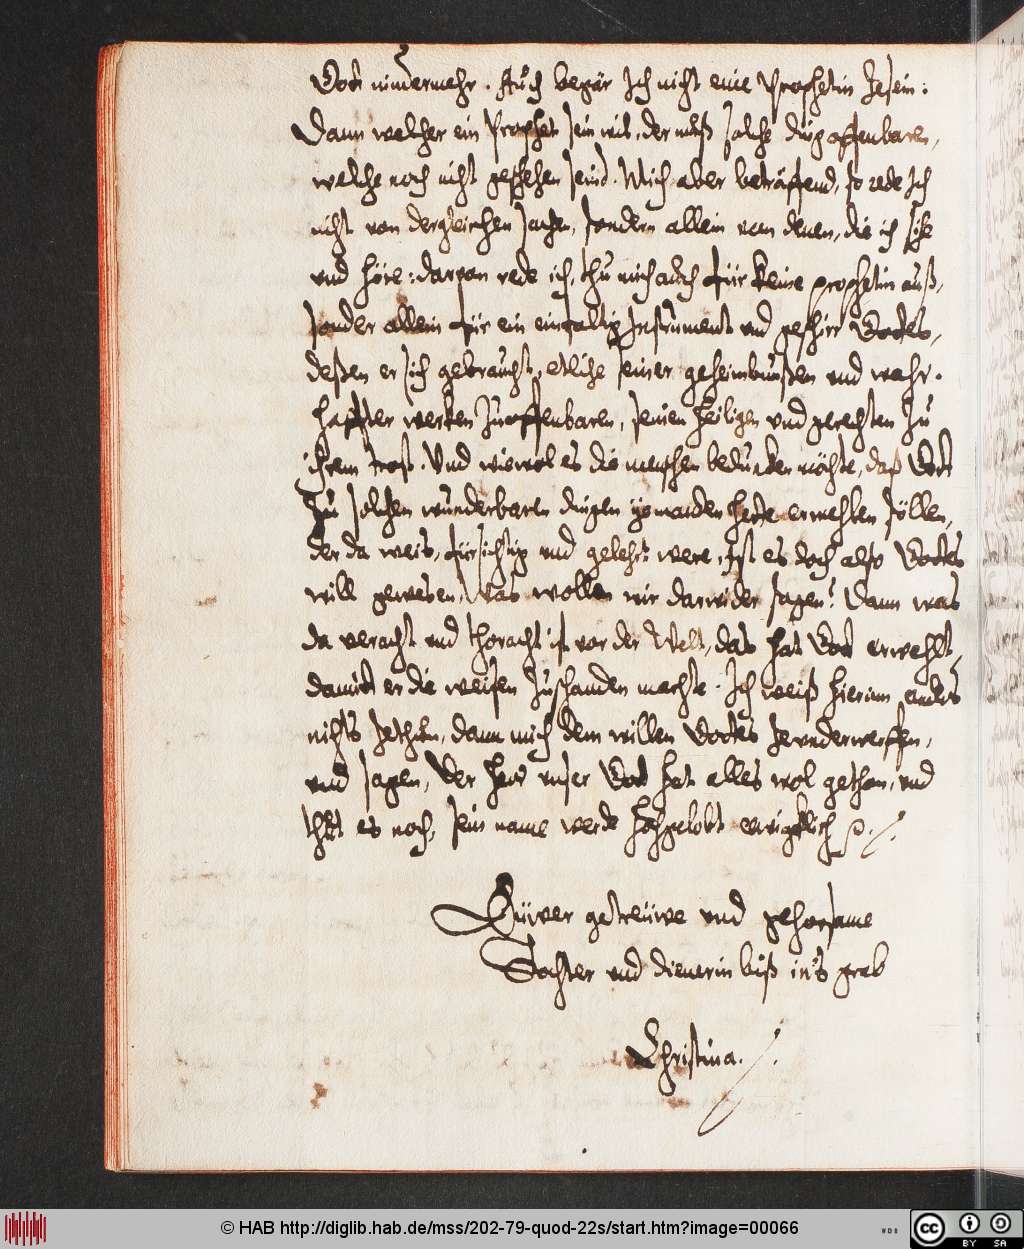 Gott nimmermehr. Auch begär Ich nicht eine Prophetin Zesein:
Dann welcher ein Prophet sein will, der muß solche ding offenbaren,
welche noch nicht geschehen seind. Mich aber beträffend, so rede Ich
nicht von dergleichen sachen, sondern allein von denen, die ich sihe
und höre: darvon rede ich, thu mich auch für keine prophetin auß,
sonder allein für ein einfaltig Instrument und geschirr Gottes,
deßen er sich gebraucht, etliche seiner geheimbnußen und wahr-
haffter wercken Zuoffenbaren, seinen heiligen und gerechten Zu
ihrem trost. Und wiewol es die menschen beduncken möchte, daß Gott
Zu solchen wunderbaren dingen yemanden hette erwehlen söllen,
der da weis, fürsichtig und gelehrt were, Ist es doch also Gottes
will gewesen, Was wollen wir darwider sagen? Dann was
da veracht und thoracht ist vor der Welt, das hat Gott erwehlt,
damit er die weisen Zuschanden machte. Ich weiß hierinn anders
nichts Zethun, dann mich dem willen Gottes Zeunderwerffen,
und sagen, Der Herr unser Gott hat alles wol gethan, und
thut es noch, sein name werde hochgelobt ewigklich
Eüwer getreüwe und gehorsame
Tochter und dienerin biß in's grab
Christina.
© HAB http://diglib.hab.de/mss/202-79-quod-22s/start.htm?image=00066
WDB
CC BY SA